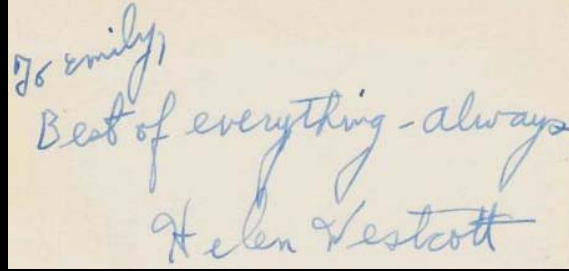 To Emily,
Best of everything - always
Helen Westcott